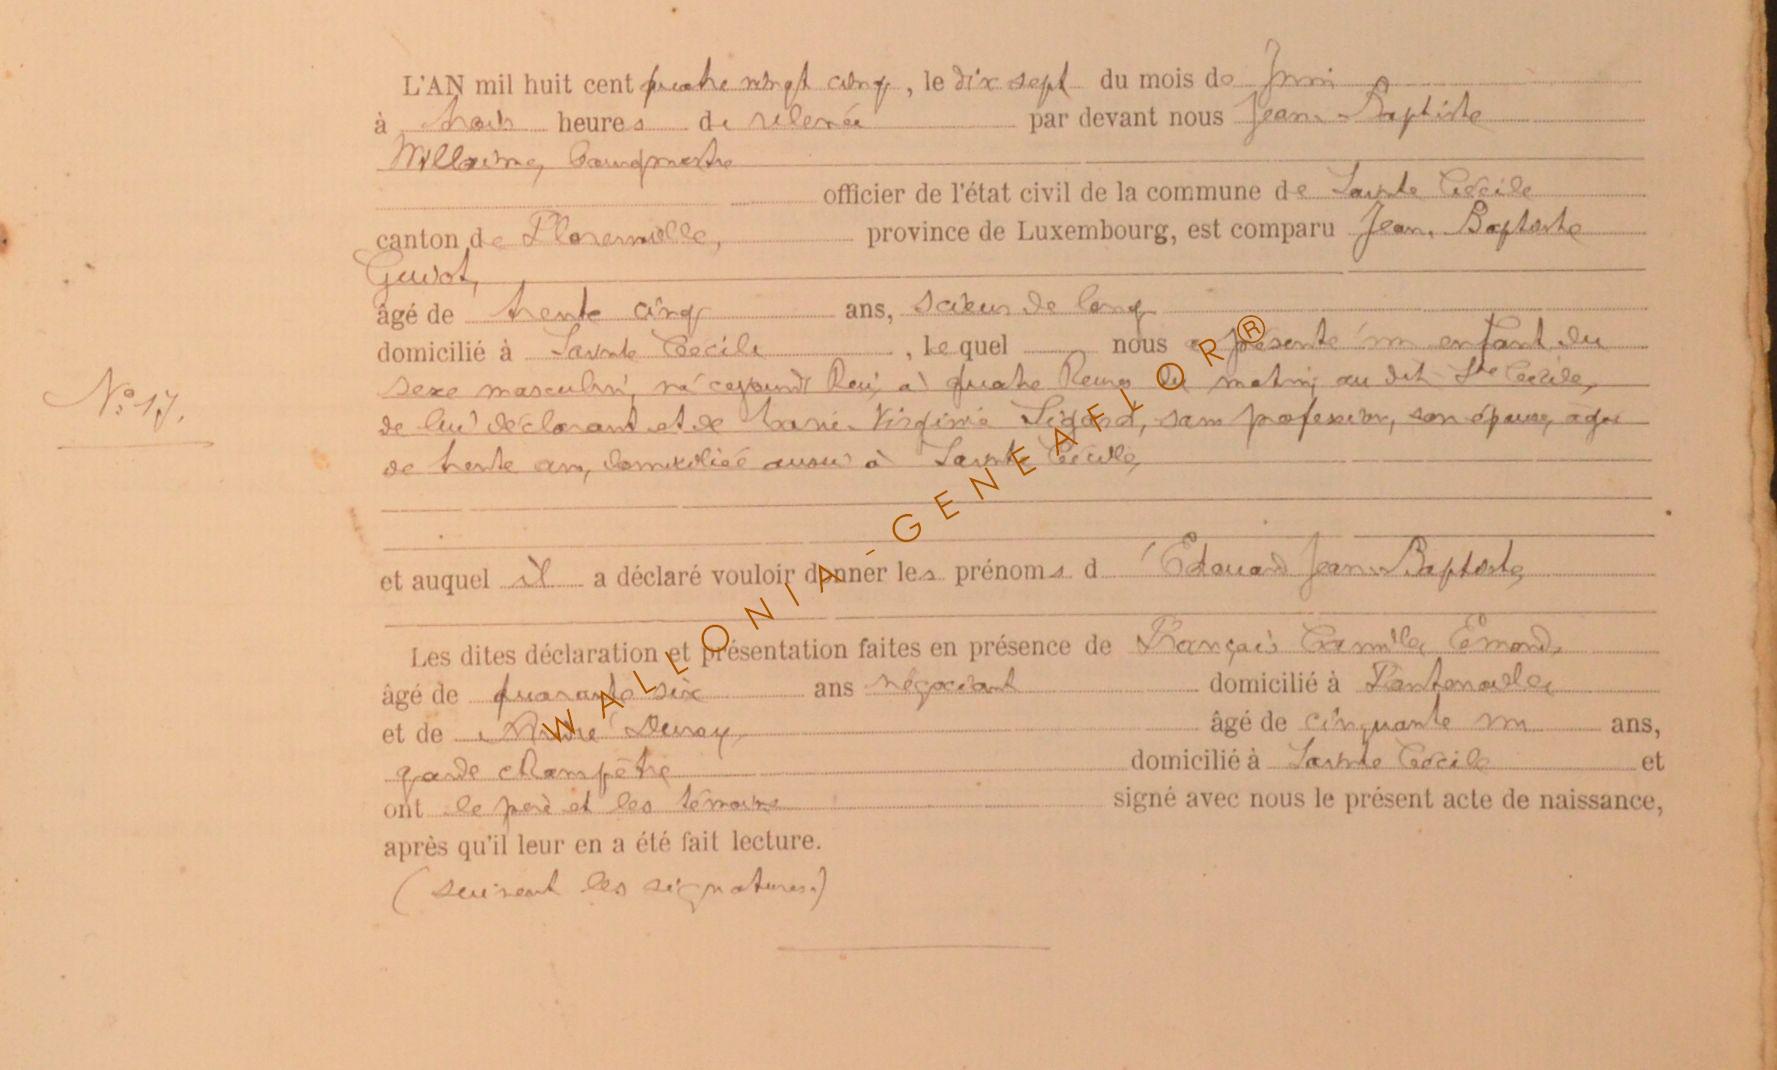 L'AN mil huit cent quatre vingt cinq, le dix sept du mois de Juin
à trois heures de relevée par devant nous Jean-Baptiste
Willaime, bourgmestre
officier de l'état civil de la commune de Sainte Cécile
canton de Florenville, province de Luxembourg, est comparu Jean-Baptiste
Guiot,
âgé de trente cinq ans, scieur de long
domicilié à Sainte Cécile, lequel nous a présenté un enfant du
sexe masculin, né cejourd'hui, à quatre heures du matin, au dit Ste Cécile,
de lui déclarant et de Marie Virginie, sans profession, son épouse, agée
de trente ans, domiciliée aussi à Sainte Cécile,
N° 17.
et auquel il a déclaré vouloir donner les prénoms d'Edouard Jean-Baptiste,
Les dites déclaration et présentation faites en présence de François Camille Emond,
âgé de quarante six ans négociant domicilié à Fontenoille,
et de André âgé de cinquante un ans,
garde champêtre domicilié à Sainte Cécile et
ont le père et les témoins signé avec nous le présent acte de naissance,
après qu'il leur en a été fait lecture.
(suivent les signatures.)
WALLONIA-GENEAFLOR®